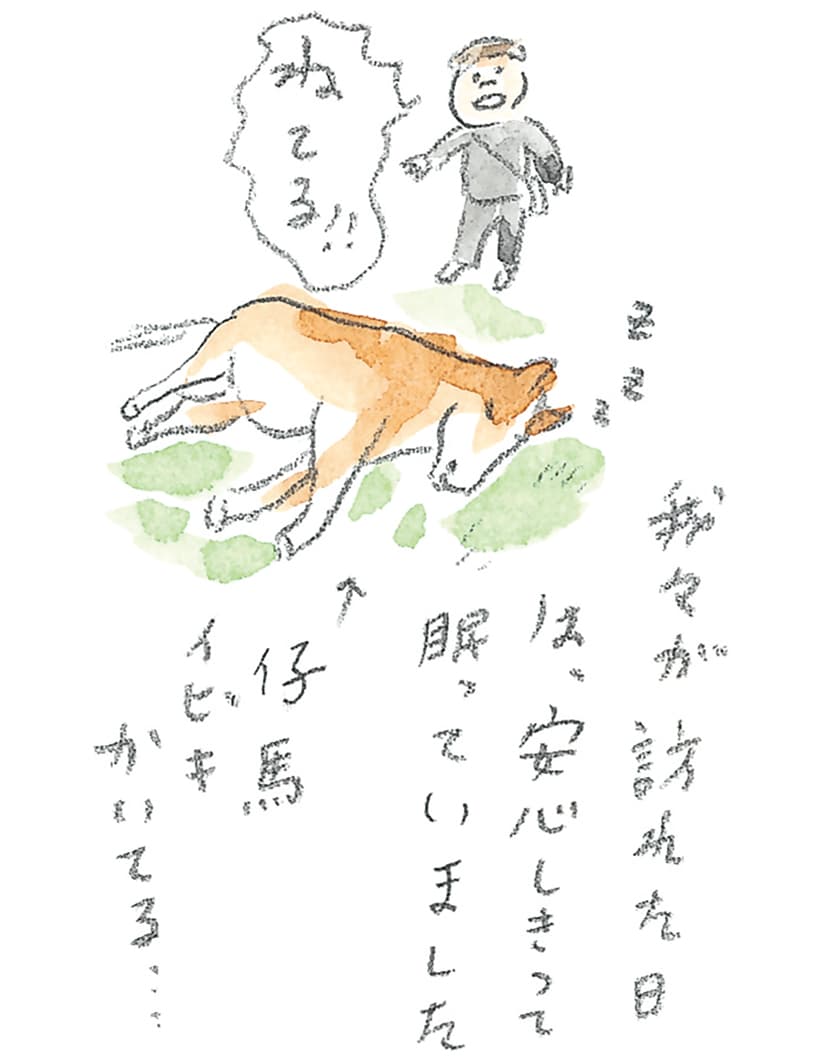 ねてる!!
z
z
z
我々が訪れた日
は、安心しきって
眠っていました
↑
仔馬
イビキ
かいてる…